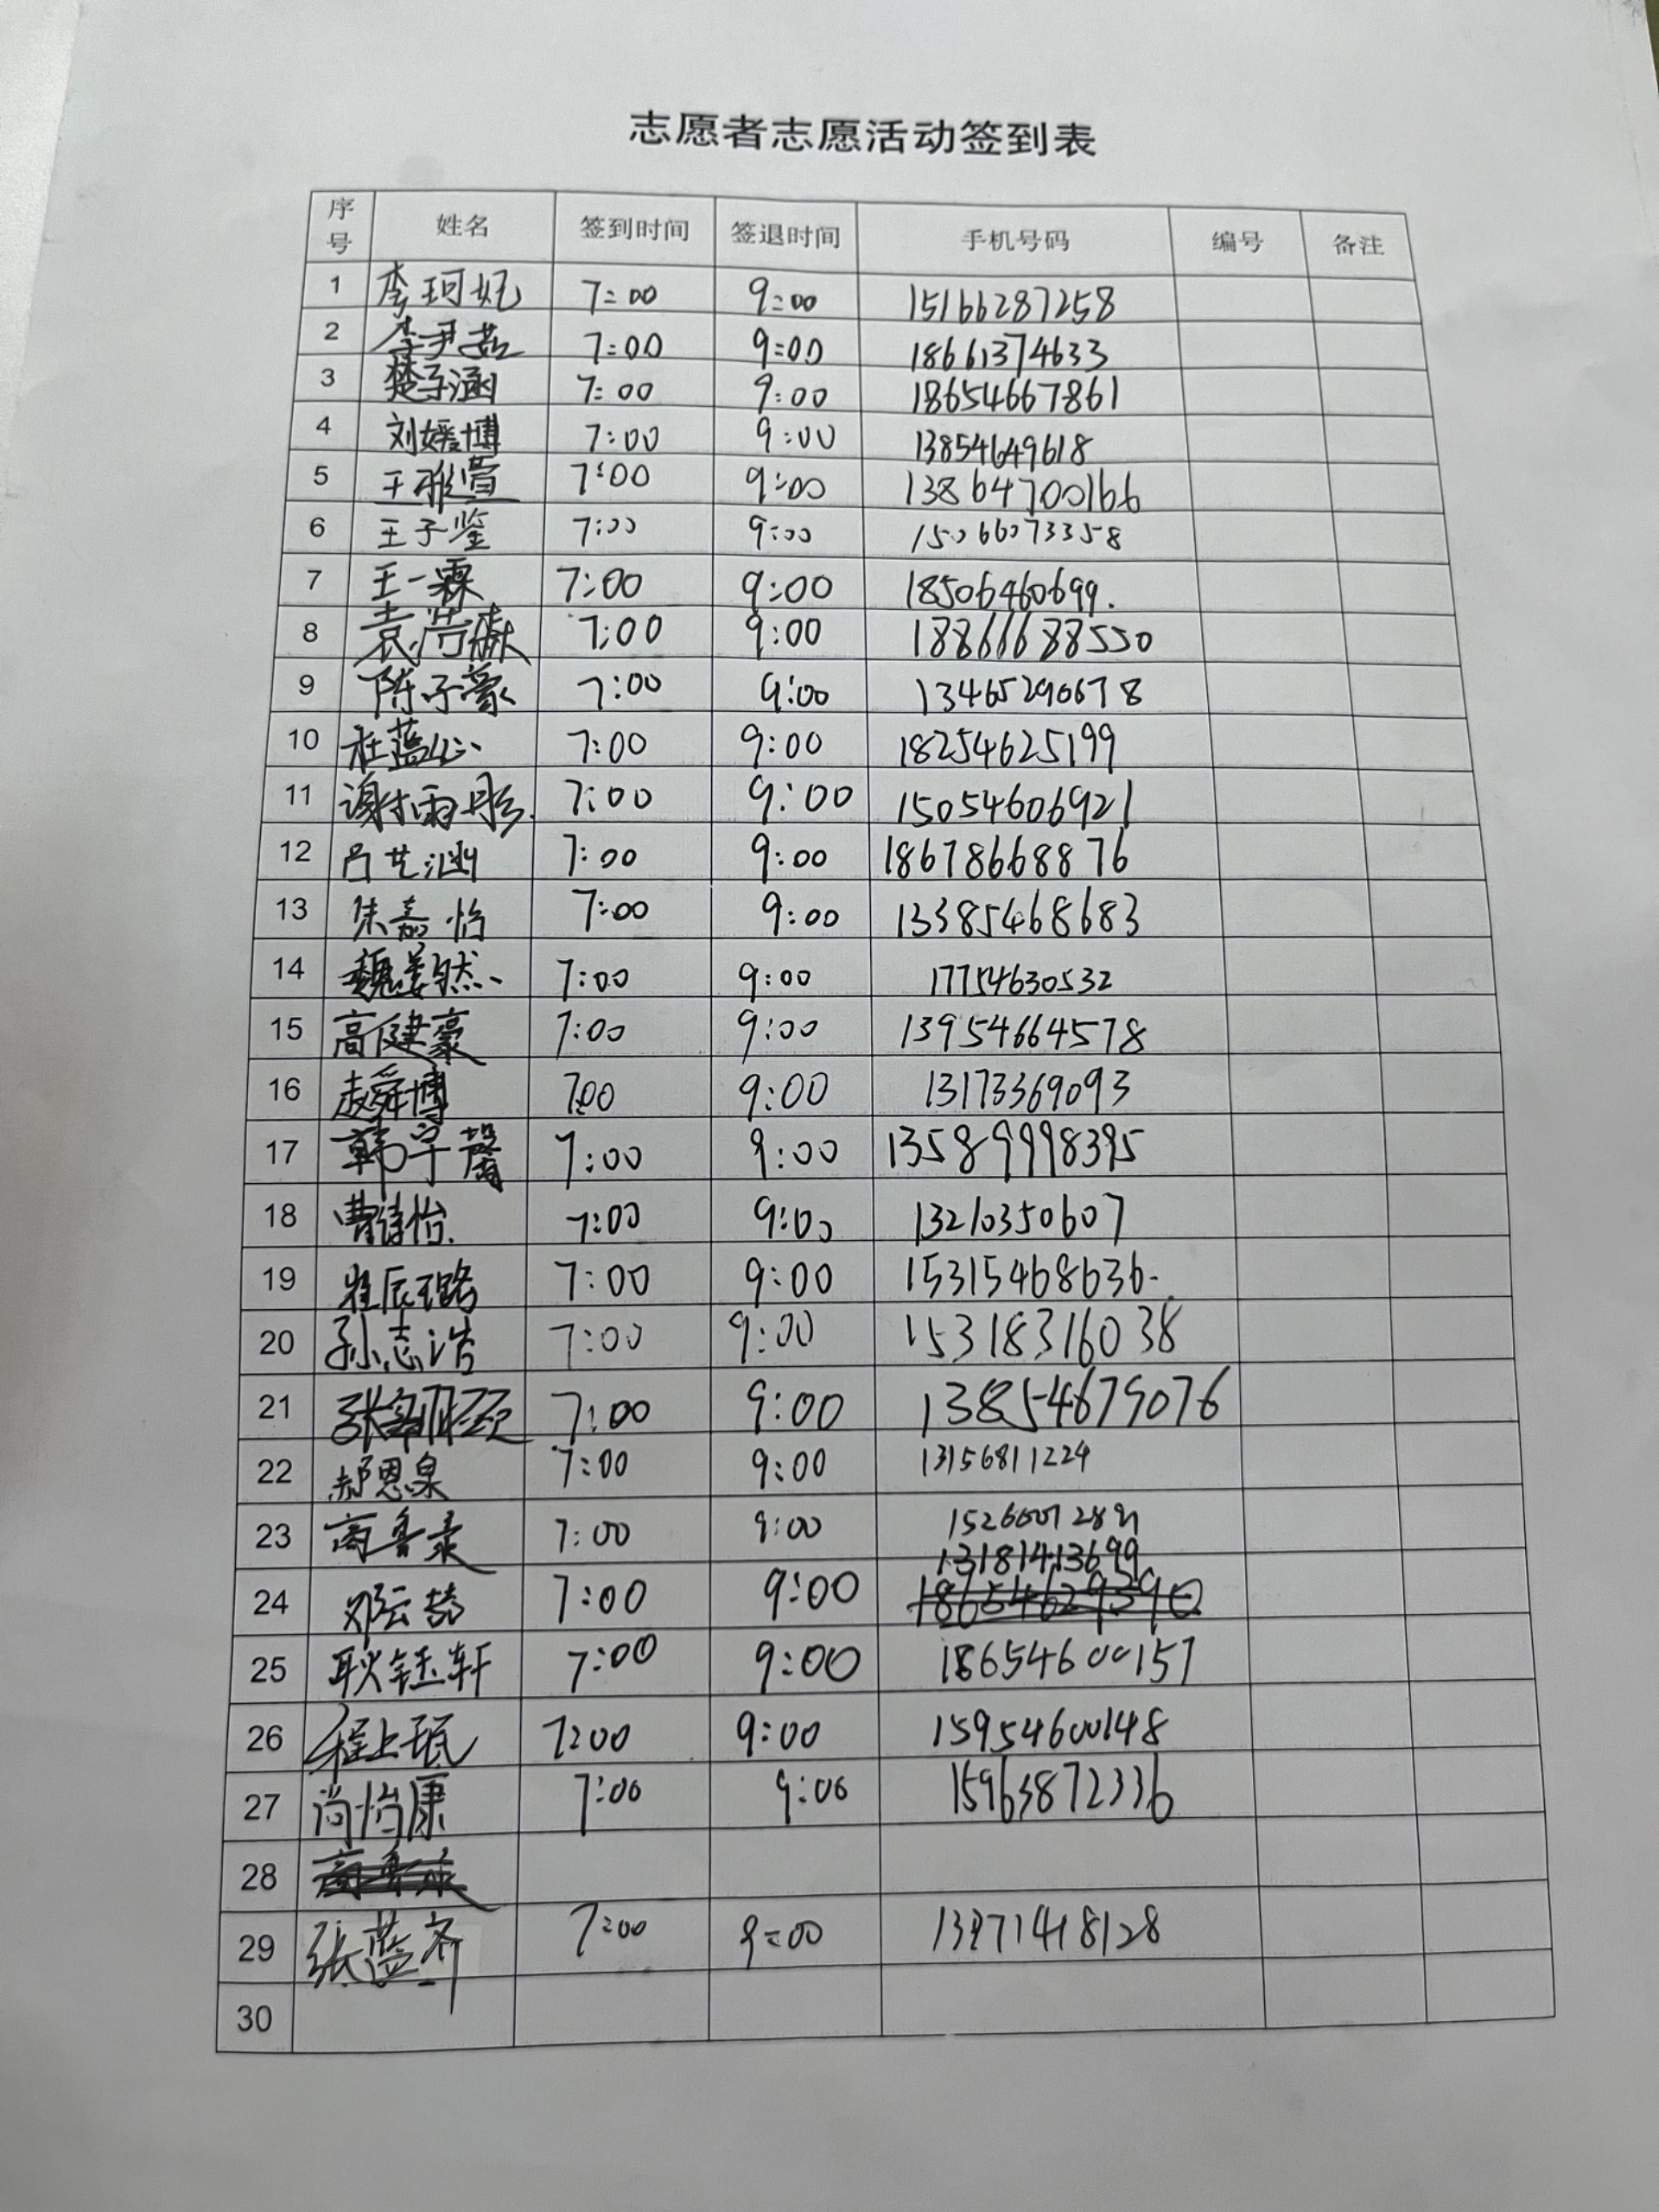 志愿者志愿活动签到表
序号 姓名 签到时间 签退时间 手机号码 编号 备注
1 李珂妃 7:00 9:00 15166287258
2 李尹茹 7:00 9:00 18661374633
3 楚子涵 7:00 9:00 18654667861
4 刘媛博 7:00 9:00 13854649618
5 王雅萱 7:00 9:00 13864700166
6 王子鉴 7:00 9:00 15066073358
7 王一霖 7:00 9:00 18506460699.
8 袁浩森 7:00 9:00 18866688550
9 陈子豪 7:00 9:00 13465290678
10 杜蓝 7:00 9:00 18254625199
11 谢雨彤. 7:00 9:00 15054606921
12 吕艺涵 7:00 9:00 18678668876
13 朱嘉怡 7:00 9:00 13385468683
14 魏姜然 7:00 9:00 17754630532
15 高健豪 7:00 9:00 13954664578
16 赵舜博 7:00 9:00 13173369093
17 韩宇馨 7:00 9:00 13589998395
18 曹诗怡. 7:00 9:00 13210350607
19 崔辰璐 7:00 9:00 15315468636.
20 孙志浩 7:00 9:00 15318316038
21 张 7:00 9:00 13854679076
22 郝恩泉 7:00 9:00 13156811224
23 商鲁录 7:00 9:00
13181413699
24 邓云喆 7:00 9:00 18654629390
25 耿钰轩 7:00 9:00 18654600157
26 程上珉 7:00 9:00 15954600148
27 尚怡康 7:00 9:00 15963872336
28
29 张蓝齐 7:00 9:00 13371418128
30